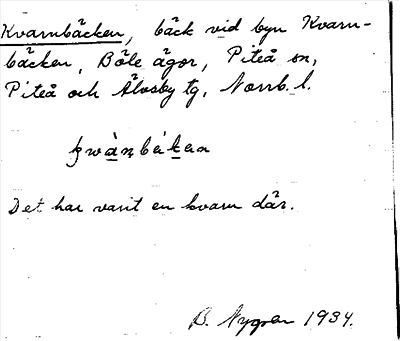 Kvarnbäcken, bäck vid byn Kvarn-
bäcken, Böle ägor, Piteå sn,
Piteå och Älvsby tg, Norrb. l.
Det har varit en kvarn där.
B. Nygren 1934.